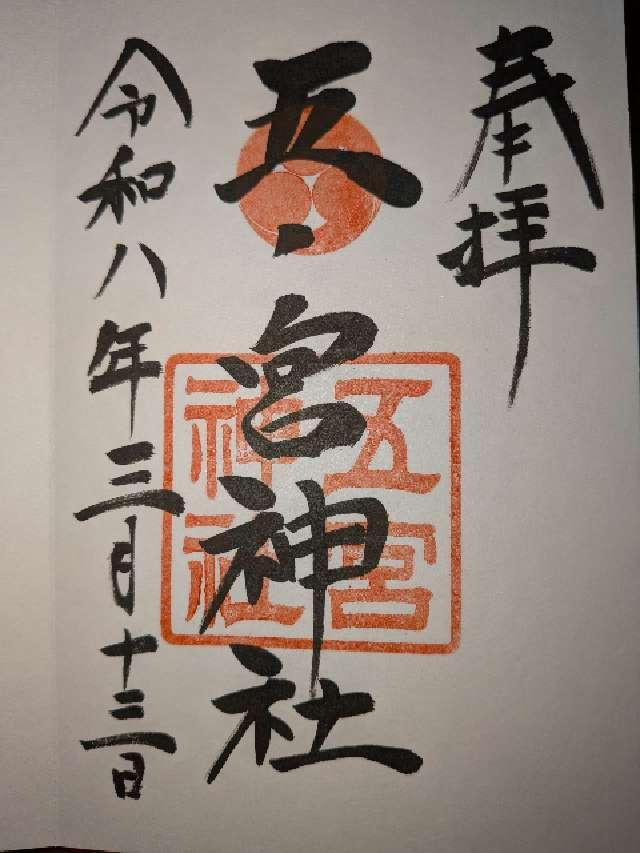 奉拝
五、宮神社
五宮
神社
令和八年三月十三日